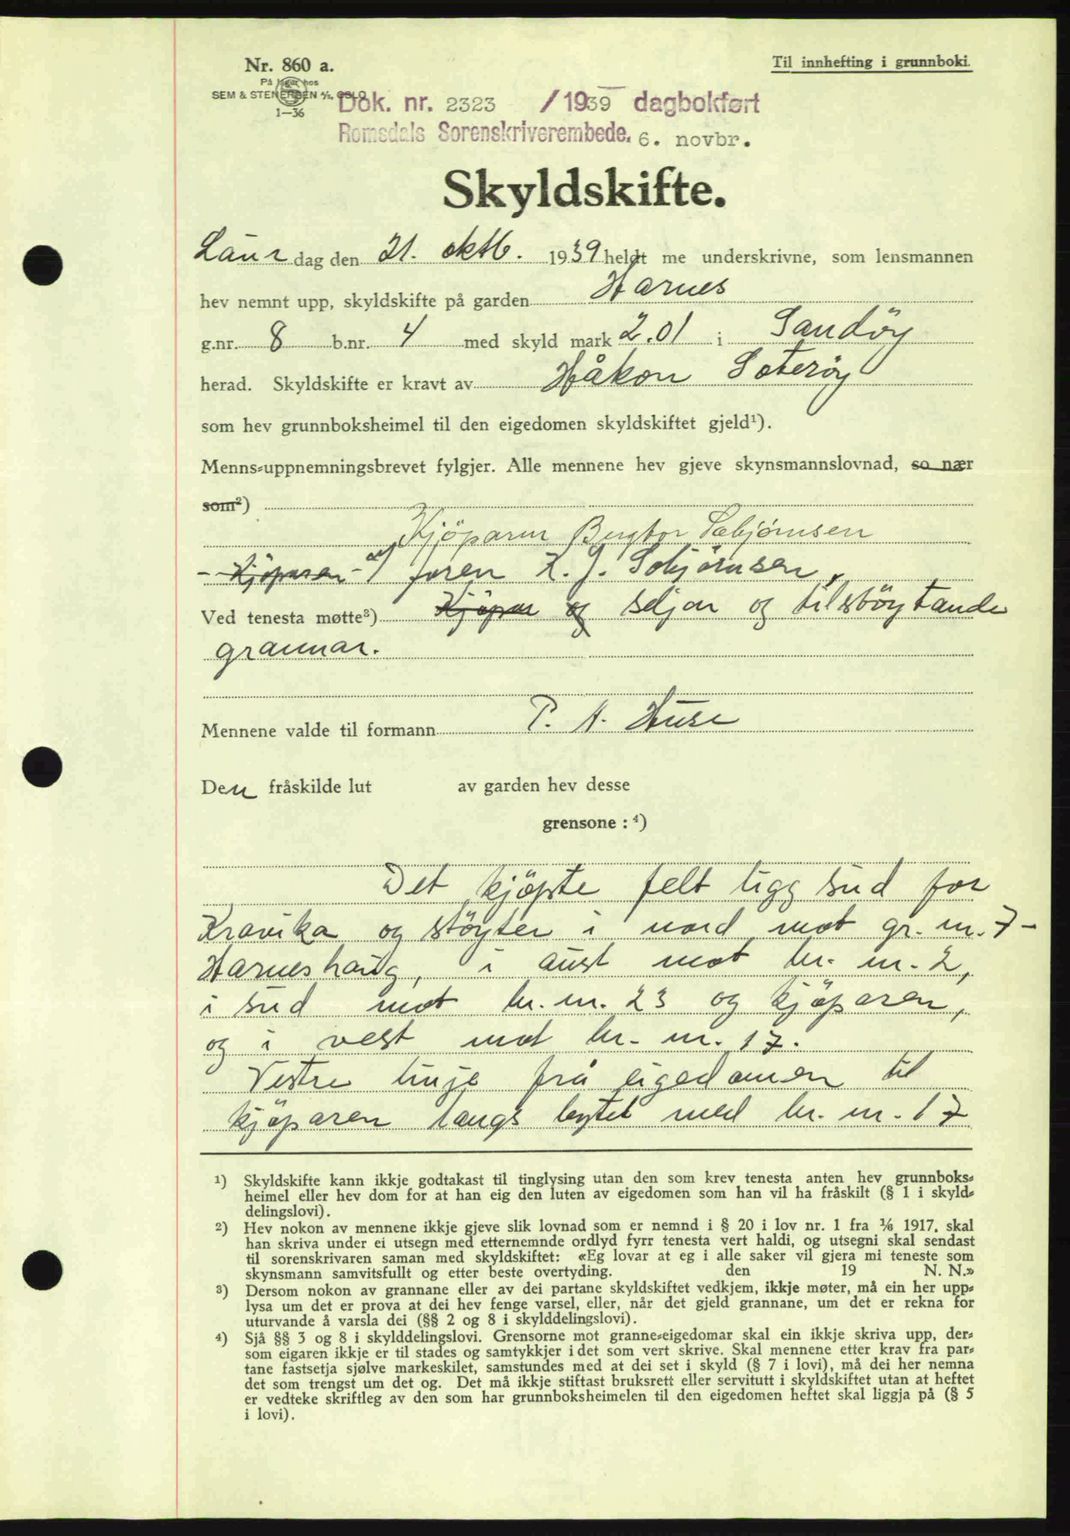 Nr. 860 a.
Til innhefting i grunnboki.
På lager hos
SEM & STENERSEN A/S, OSLO
1—36
Dok. nr. 2323 /1939 dagbokført
Romsdals Sorenskriverembede. 6. novbr.
Skyldskifte.
Laur dag den 21. oktb. 1939 heldt me underskrivne, som lensmannen
hev nemnt upp, skyldskifte på garden Harnes
g.nr. 8 b.nr. 4 med skyld mark 2.01 i Sandöy
herad. Skyldskifte er kravt av Håkon Soteröy
som hev grunnboksheimel til den eigedomen skyldskiftet gjeld¹).
Menns-uppnemningsbrevet fylgjer. Alle mennene hev gjeve skynsmannslovnad, so nær
som²)
Kjöparen
Kjöparen
Ved tenesta møtte³) Kjöpar og seljar og tilstöytande
grannar.
Mennene valde til formann P. A. Huse
Den fråskilde lut av garden hev desse
grensone : ⁴)
Det kjöpte felt ligg sud for
Kravika og stöyter i nord mot gr. nr. 7 -
Harneshaug, i aust mot br. nr. 2,
i sud mot br. nr. 23 og kjöparen,
og i vest mot br. nr. 17.
Vestre linje frå eigedomen til
kjöparen langs bytet med br. nr. 17
¹) Skyldskifte kann ikkje godtakast til tinglysing utan den som krev tenesta anten hev grunnboks-
heimel eller hev dom for at han eig den luten av eigedomen som han vil ha fråskilt (§ 1 i skyld-
delingslovi).
²) Hev nokon av mennene ikkje gjeve slik lovnad som er nemnd i § 20 i lov nr. 1 fra ¹/₆ 1917, skal
han skriva under ei utsegn med etternemnde ordlyd fyrr tenesta vert haldi, og utsegni skal sendast
til sorenskrivaren saman med skyldskiftet: «Eg lovar at eg i alle saker vil gjera mi teneste som
skynsmann samvitsfullt og etter beste overtyding. den 19 N. N.»
³) Dersom nokon av grannane eller av dei partane skyldskiftet vedkjem, ikkje møter, må ein her upp-
lysa um det er prova at dei hev fenge varsel, eller, når det gjeld grannane, um det er rekna for
uturvande å varsla dei (§§ 2 og 8 i skylddelingslovi).
⁴) Sjå §§ 3 og 8 i skylddelingslovi. Grensorne mot granne-eigedomar skal ein ikkje skriva upp, der-
som eigaren ikkje er til stades og samtykkjer i det som vert skrive. Skal mennene etter krav fra par-
tane fastsetja sjølve markeskilet, samstundes med at dei set i skyld (§ 7 i lovi), må dei her nemna
det som trengst um det og. Det må ikkje stiftast bruksrett eller servitutt i skyldskiftet utan at heftet
er vedteke skriftleg av den som har grunnboksheimelen til den eigedomen heftet skal liggja på (§ 5
i lovi).